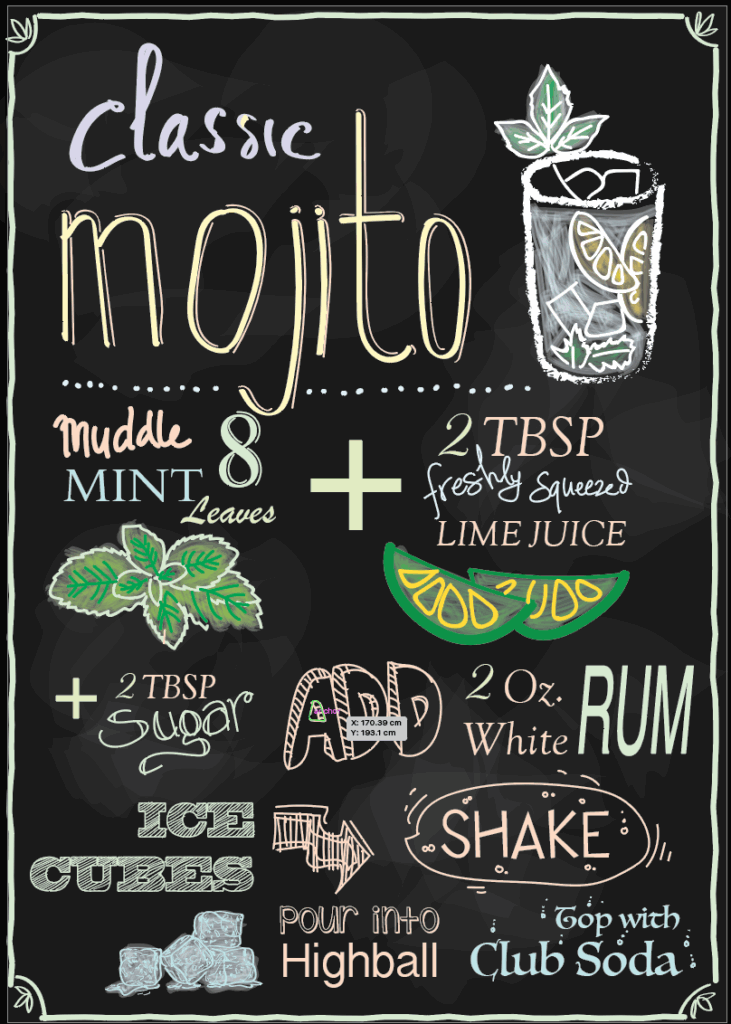 classic
mojito
muddle 8
MINT
Leaves
+
2 TBSP
freshly squeezed
LIME JUICE
+ 2 TBSP
sugar
ADD
X: 170.39 cm
Y: 193.1 cm
2 Oz.
White RUM
ICE
CUBES
SHAKE
pour into
Highball
Top with
Club Soda